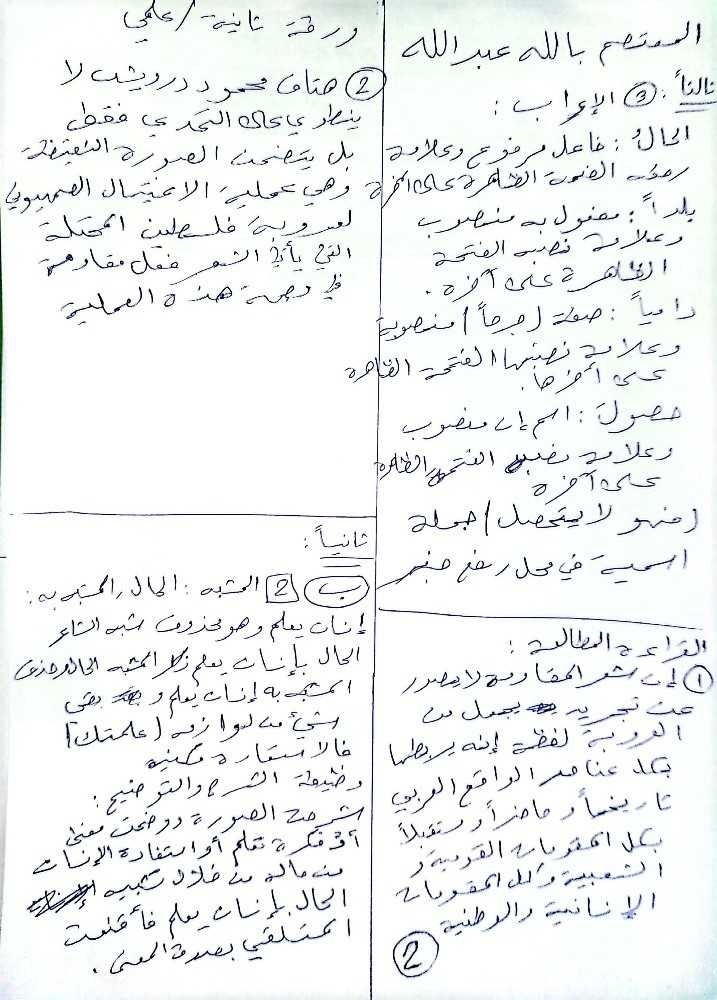 المعتصم بالله عبد الله
ثالثاً: ③ الإعراب:
الحالُ: فاعل مرفوع وعلامة
رفعه الضمة الظاهرة على آخره
بلداً: مفعول به منصوب
وعلامة نصبه الفتحة
الظاهرة على آخره.
دامياً: صفة (جرحاً) منصوبة
وعلامة نصبها الفتحة الظاهرة
على آخرها.
حصولَ: اسم إن منصوب
وعلامة نصبه الفتحة الظاهرة
على آخره
(فهو لا يتحصل) جملة
اسمية في محل رفع خبر
القراءة المطالعة:
① إن شعر المقاومة لا يصدر
عن تجريد يجعل من
العروبة لفظة إنه يربطها
بكل عناصر الواقع العربي
تاريخاً وحاضراً ومستقبلاً
بكل المقومات القومية و
الشعبية وكل المقومات
الإنسانية والوطنية
②
ورقة ثانية / علمي
② هتاف محمود درويش لا
ينطوي على التحدي فقط
بل يتضمن الصورة النقيضة
وهي عملية الاغتيال الصهيوني
لعروبة فلسطين المحتلة
التي يأتي الشعر فعل مقاومة
في وجه هذه العملية
ثانياً:
ب 2 المشبه: الحال المشبه به:
إنسان يعلم وهو محذوف شبه الشاعر
الحال بإنسان يعلم ذكر المشبه الحال وحذف
المشبه به إنسان يعلم و بقى
شيء من لوازمه (علمتك)
فالاستعارة مكنية
وظيفة الشرح والتوضيح:
شرحت الصورة ووضحت معنى
أو فكرة تعلم أو استفادة الإنسان
من ماله من خلال تشبيه
الحال بإنسان يعلم فأقنعت
المتلقي بصدق المعنى.